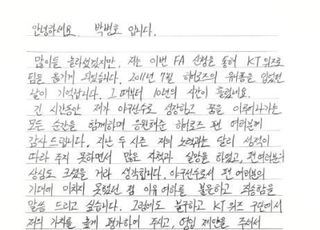 안녕하세요. 박병호 입니다.
많이들 놀라셨겠지만, 저는 이번 FA 신청을 통해 KT 위즈로
팀을 옮기게 되었습니다. 2011년 7월 히어로즈의 유니폼을 입었던
날이 기억납니다. 그 때부터 10년의 시간이 흘렀네요.
긴 시간동안 제가 야구선수로 성장하고 꿈을 이루어나가는
모든 순간을 함께하며 응원해준 히어로즈 팬 여러분께
감사 드립니다. 지난 두 시즌 제 노력과는 달리 성적이
따라 주지 못하면서 많은 자책과 실망을 하였고, 팬 여러분의
상심도 크셨을 거라 생각합니다. 야구선수로서 팬 여러분의
기대에 미치지 못했던 점 이유여하를 불문하고 죄송함을
말씀 드리고 싶습니다. 그럼에도 불구하고 KT 위즈 구단에서
저의 가치를 높게 평가하여 주시고, 영입 제안을 주셔서